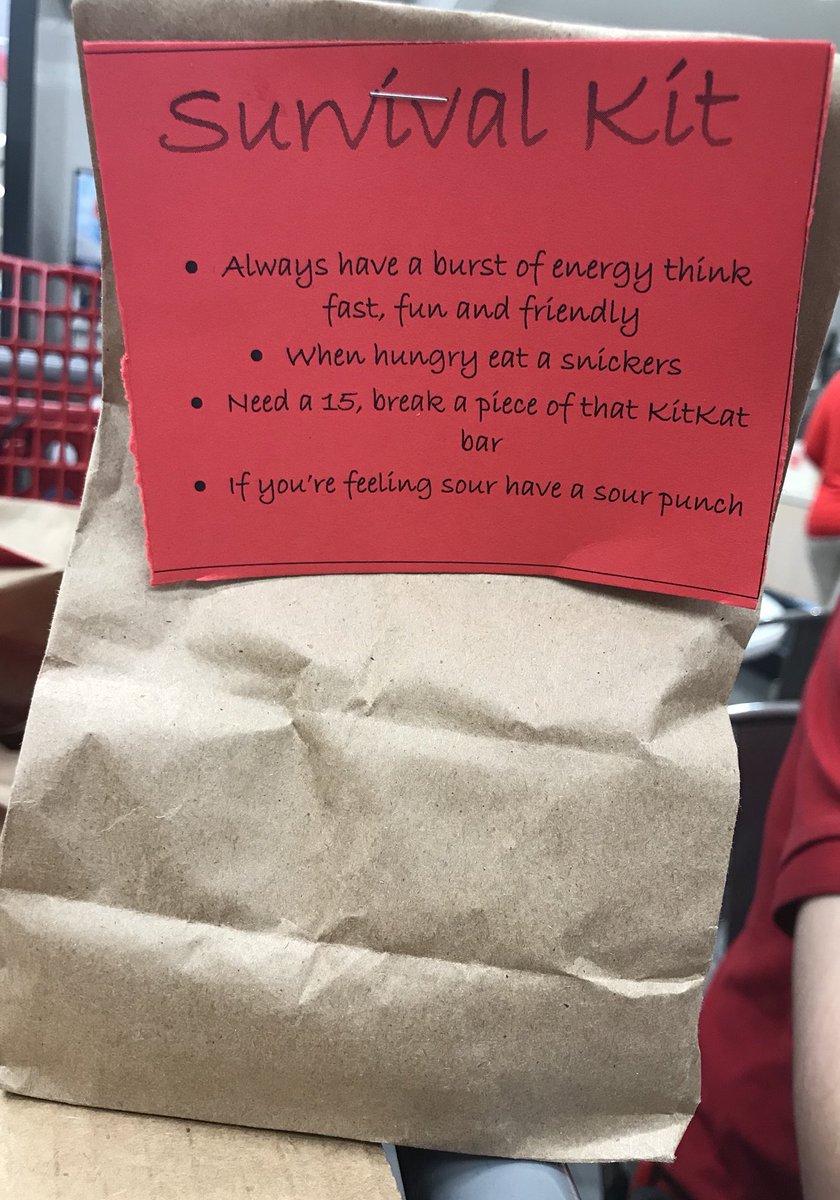 Survival Kit
• Always have a burst of energy think
fast, fun and friendly
• When hungry eat a snickers
• Need a 15, break a piece of that KitKat
bar
• If you're feeling sour have a sour punch